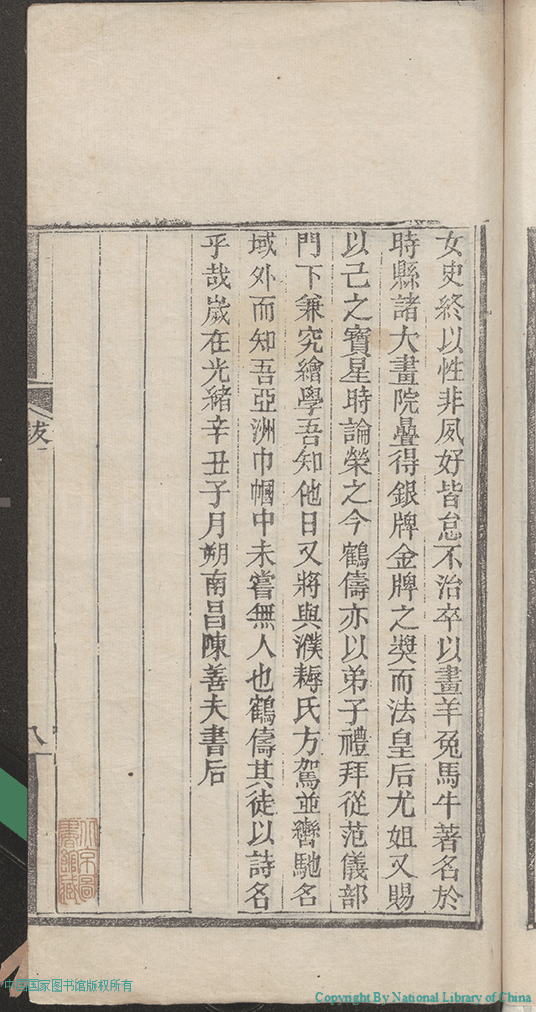 女史終以性非夙好皆怠不治卒以畫羊兔馬牛著名於
時縣諸大畫院曡得銀牌金牌之奬而法皇后尤姐又賜
以己之寶星時論榮之今鶴儔亦以弟子禮拜從范儀部
門下兼究繪學吾知他日又將與濮耨氏方駕並轡馳名
域外而知吾亞洲巾幗中未嘗無人也鶴儔其徒以詩名
乎哉歲在光緒辛丑子月朔南昌陳善夫書后
跋
八
中国国家图书馆版权所有
Copyright By National Library of China